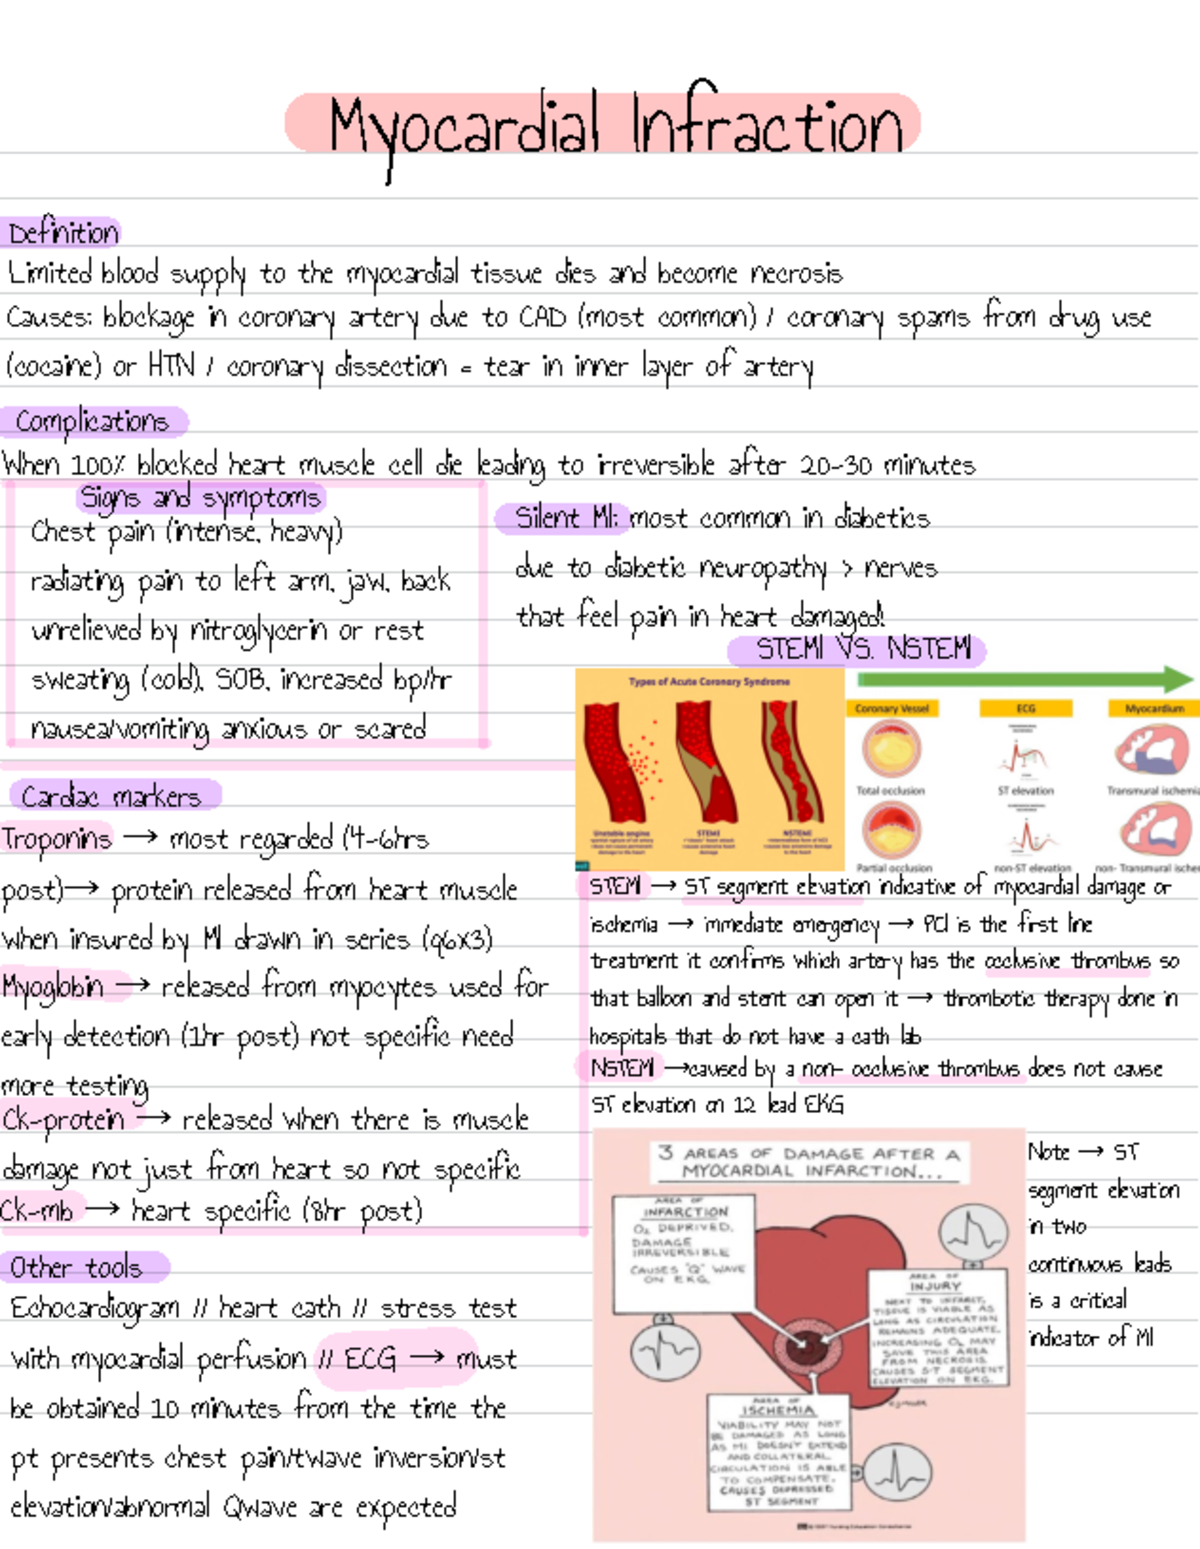 Myocardial Infraction
Definition
Limited blood supply to the myocardial tissue dies and become necrosis
Causes: blockage in coronary artery due to CAD (most common) / coronary spams from drug use
(cocaine) or HTN / coronary dissection = tear in inner layer of artery
Complications
When 100% blocked heart muscle cell die leading to irreversible after 20-30 minutes
Signs and symptoms
Chest pain (intense, heavy)
radiating pain to left arm, jaw, back
unrelieved by nitroglycerin or rest
sweating (cold), SOB, increased bp/hr
nausea/vomiting anxious or scared
Silent MI: most common in diabetics
due to diabetic neuropathy > nerves
that feel pain in heart damaged!
STEMI VS. NSTEMI
Types of Acute Coronary Syndrome
Unstable angina
STEMI
NSTEMI
Coronary Vessel
ECG
Myocardium
Total occlusion
ST elevation
Transmural ischemia
Partial occlusion
non-ST elevation
non- Transmural ische
Cardiac markers
Troponins → most regarded (4-6hrs
post)→ protein released from heart muscle
when insured by MI drawn in series (q6x3)
Myoglobin → released from myocytes used for
early detection (1hr post) not specific need
more testing
Ck-protein → released when there is muscle
damage not just from heart so not specific
Ck-mb → heart specific (8hr post)
STEMI → ST segment elevation indicative of myocardial damage or
ischemia → immediate emergency → PCI is the first line
treatment it confirms which artery has the occlusive thrombus so
that balloon and stent can open it → thrombotic therapy done in
hospitals that do not have a cath lab
NSTEMI →caused by a non- occlusive thrombus does not cause
ST elevation on 12 lead EKG
Other tools
Echocardiogram // heart cath // stress test
with myocardial perfusion // ECG → must
be obtained 10 minutes from the time the
pt presents chest pain/twave inversion/st
elevation/abnormal Qwave are expected
3 AREAS OF DAMAGE AFTER A
MYOCARDIAL INFARCTION...
AREA OF
INFARCTION
O₂ DEPRIVED.
DAMAGE
IRREVERSIBLE
CAUSES "Q" WAVE
ON EKG.
AREA OF
INJURY
NEXT TO INFARCT,
TISSUE IS VIABLE AS
LONG AS CIRCULATION
REMAINS ADEQUATE.
INCREASING O₂ MAY
SAVE THIS AREA
FROM NECROSIS.
CAUSES S-T SEGMENT
ELEVATION ON EKG.
AREA OF
ISCHEMIA
VIABILITY MAY NOT
BE DAMAGED AS LONG
AS MI DOESN'T EXTEND
AND COLLATERAL
CIRCULATION IS ABLE
TO COMPENSATE.
CAUSES DEPRESSED
ST SEGMENT
Note → ST
segment elevation
in two
continuous leads
is a critical
indicator of MI